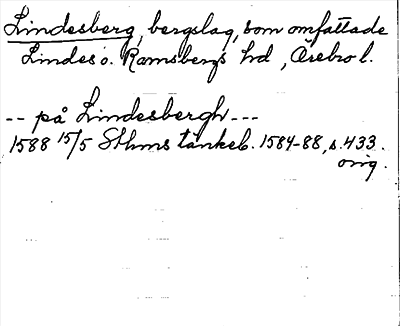 Lindesberg, bergslag, som omfattade
Lindes o. Ramsbergs hd, Örebro l.
-- på Lindesbergh ---
1588 15/5 Sthms tänkeb. 1584-88, s. 433.
orig.